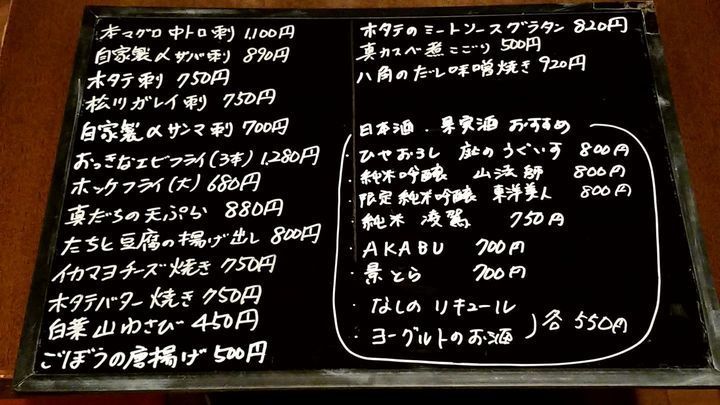 本マグロ 中トロ刺 1,100円
自家製〆サバ刺 890円
ホタテ刺 750円
松川ガレイ刺 750円
自家製〆サンマ刺 700円
おっきなエビフライ(3本) 1,280円
ホックフライ(大) 680円
真だちの天ぷら 880円
たちと豆腐の揚げ出し 800円
イカマヨチーズ焼き 750円
ホタテバター焼き 750円
白菜山わさび 450円
ごぼうの唐揚げ 500円
ホタテのミートソースグラタン 820円
真カスベ煮こごり 500円
八角のだし味噌焼き 920円
日本酒・果実酒 おすすめ
・ひやおろし 庭のうぐいす 800円
・純米吟醸 山法師 800円
・限定純米吟醸 東洋美人 800円
・純米 凌駕 750円
・AKABU 700円
・景とら 700円
・なしのリキュール
・ヨーグルトのお酒 各550円